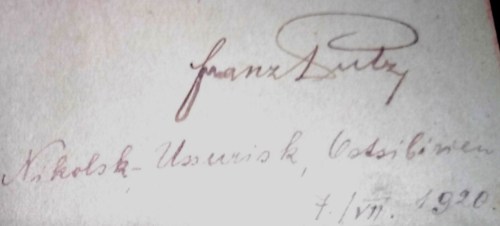 Franz Putz
Nikolsk-Ussurisk, Ostsibirien
7./VII. 1920.